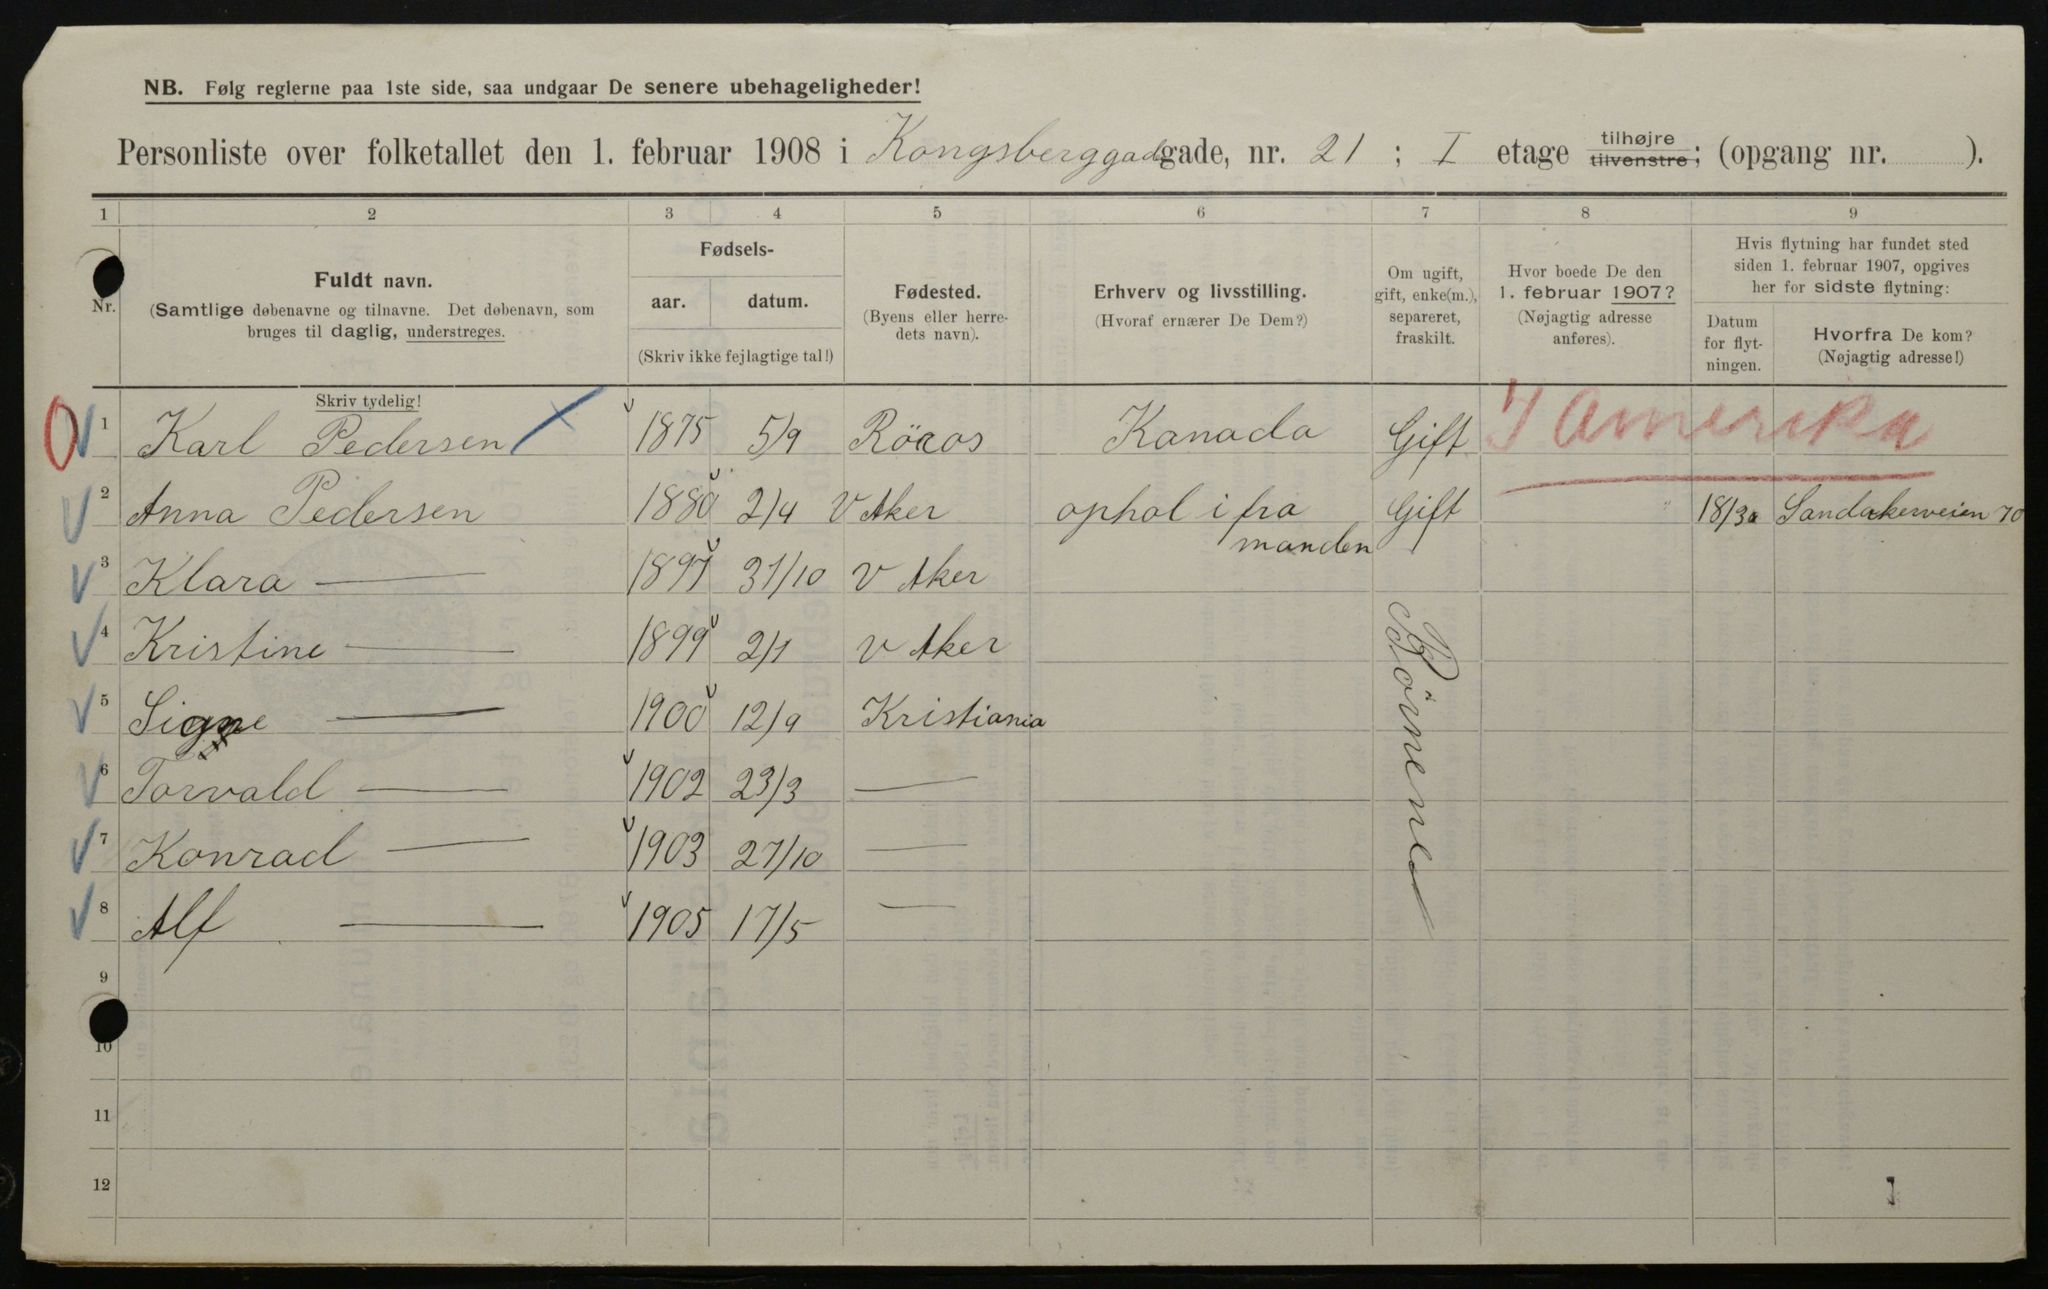 NB. Følg reglerne paa 1ste side, saa undgaar De senere ubehageligheder!
Personliste over folketallet den 1. februar 1908 i Kongsberggadegade, nr. 21 ; I etage tilhøjre tilvenstre; (opgang nr. ).
1 2 3 4 5 6 7 8 9
Nr.
Fuldt navn.
(Samtlige døbenavne og tilnavne. Det døbenavn, som
bruges til daglig, understreges.
Skriv tydelig!
Fødsels-
aar. datum.
(Skriv ikke fejlagtige tal!)
Fødested.
(Byens eller herre-
dets navn).
Erhverv og livsstilling.
(Hvoraf ernærer De Dem?)
Om ugift,
gift, enke(m.),
separeret,
fraskilt.
Hvor boede De den
1. februar 1907?
(Nøjagtig adresse
anføres).
Hvis flytning har fundet sted
siden 1. februar 1907, opgives
her for sidste flytning:
Datum
for flyt-
ningen.
Hvorfra De kom?
(Nøjagtig adresse!)
1 Karl Pedersen 1875 5/9 Röros Kanada Gift I Amerika
2 Anna Pedersen 1880 2/4 V Aker ophol i fra Gift Sandakerveien 70
manden
3 Klara — 1897 31/10 V Aker
4 Kristine — 1899 2/1 V Aker
5 Signe — 1900 12/9 Kristiania
6 Torvald — 1902 23/3 —
7 Konrad — 1903 27/10 —
8 Alf — 1905 17/5 —
Börnene
9
10
11
12
1